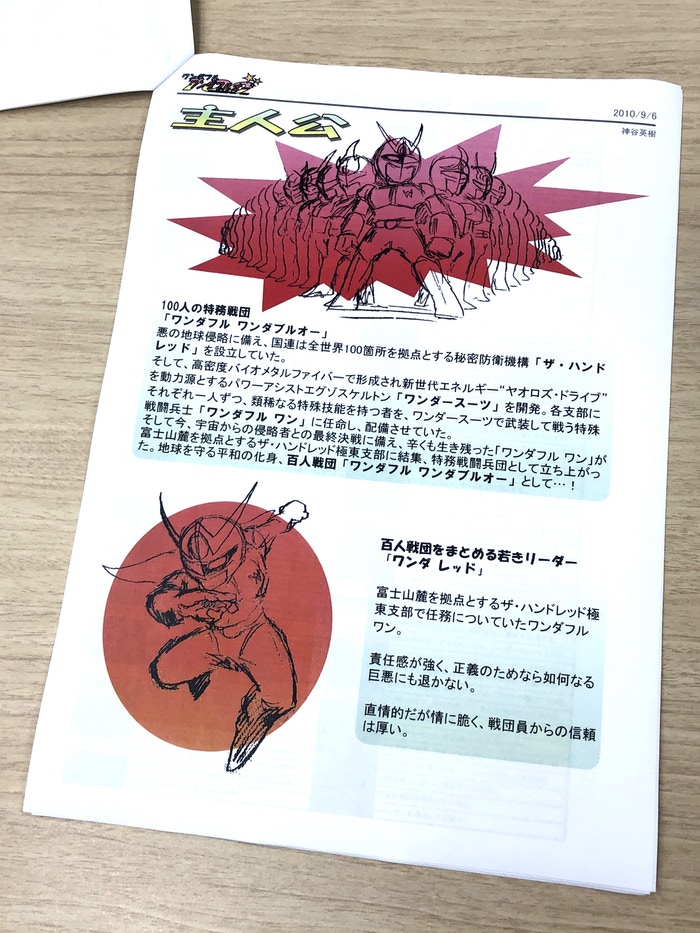 ワンダフル
ワンダブルオー
2010/9/6
神谷英樹
主人公
100人の特務戦団
「ワンダフル ワンダブルオー」
悪の地球侵略に備え、国連は全世界100箇所を拠点とする秘密防衛機構「ザ・ハンド
レッド」を設立していた。
そして、高密度バイオメタルファイバーで形成され新世代エネルギー“ヤオロズ・ドライブ”
を動力源とするパワーアシストエグゾスケルトン「ワンダースーツ」を開発。各支部に
それぞれ一人ずつ、類稀なる特殊技能を持つ者を、ワンダースーツで武装して戦う特殊
戦闘兵士「ワンダフル ワン」に任命し、配備させていた。
そして今、宇宙からの侵略者との最終決戦に備え、辛くも生き残った「ワンダフル ワン」が
富士山麓を拠点とするザ・ハンドレッド極東支部に結集、特務戦闘兵団として立ち上がっ
た。地球を守る平和の化身、百人戦団「ワンダフル ワンダブルオー」として…！
百人戦団をまとめる若きリーダー
「ワンダ レッド」
富士山麓を拠点とするザ・ハンドレッド極
東支部で任務についていたワンダフル
ワン。
責任感が強く、正義のためなら如何なる
巨悪にも退かない。
直情的だが情に脆く、戦団員からの信頼
は厚い。